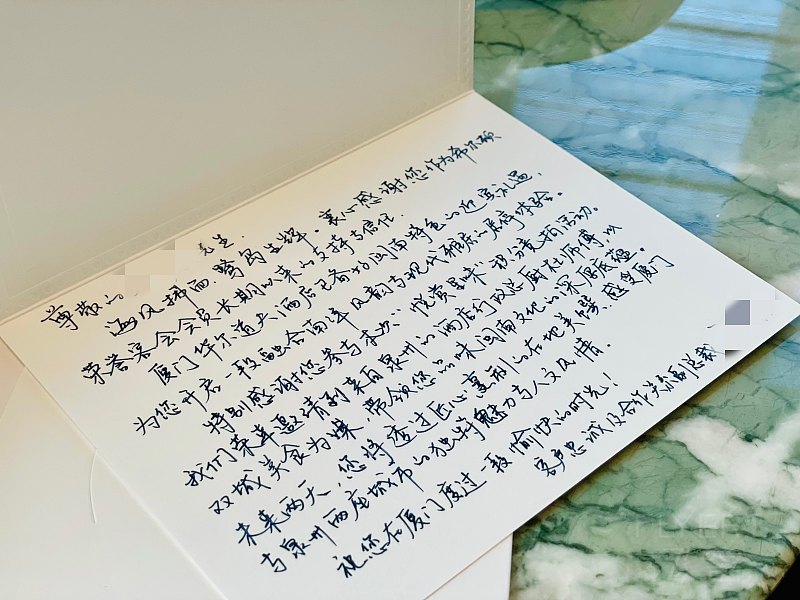 尊敬的 先生,
海风拂面,鹭岛生辉。衷心感谢您作为希尔顿
荣誉客会会员长期以来的支持与信任。
厦门华尔道夫酒店已备好闽南特色的迎宾礼遇,
为您开启一段融合百年风韵与现代雅致的居停体验。
特别感谢您参与本次“悦赏 ”积分竞拍活动。
我们荣幸邀请到来自泉州的酒店行政总厨 师傅,以
双城美食为媒,带领您品味闽南文化的深厚底蕴。
未来两天,您将透过匠心烹制的在地美馔,感受厦门
与泉州两座城市的独特魅力与人文风情。
祝您在厦门度过一段愉快的时光!
客户忠诚及合作关系副总裁